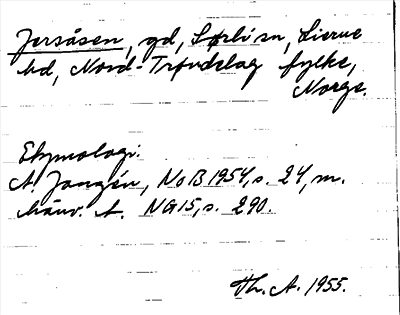 Jersåsen, gd, Sørli sn, Lierne
hd, Nord-Trøndelag fylke,
Norge.
Etymologi:
A. Janzén, NoB 1954, s. 24, m.
hänv. t. NG 15, s. 290.
Th. A. 1955.